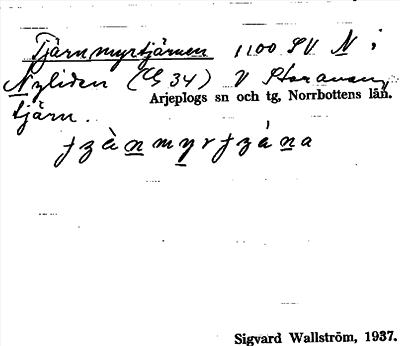 Tjärnmyrtjärnen 1100 SV N i
Nyliden (C 34) V Storavan,
Arjeplogs sn och tg, Norrbottens län.
tjärn.
Sigvard Wallström, 1937.